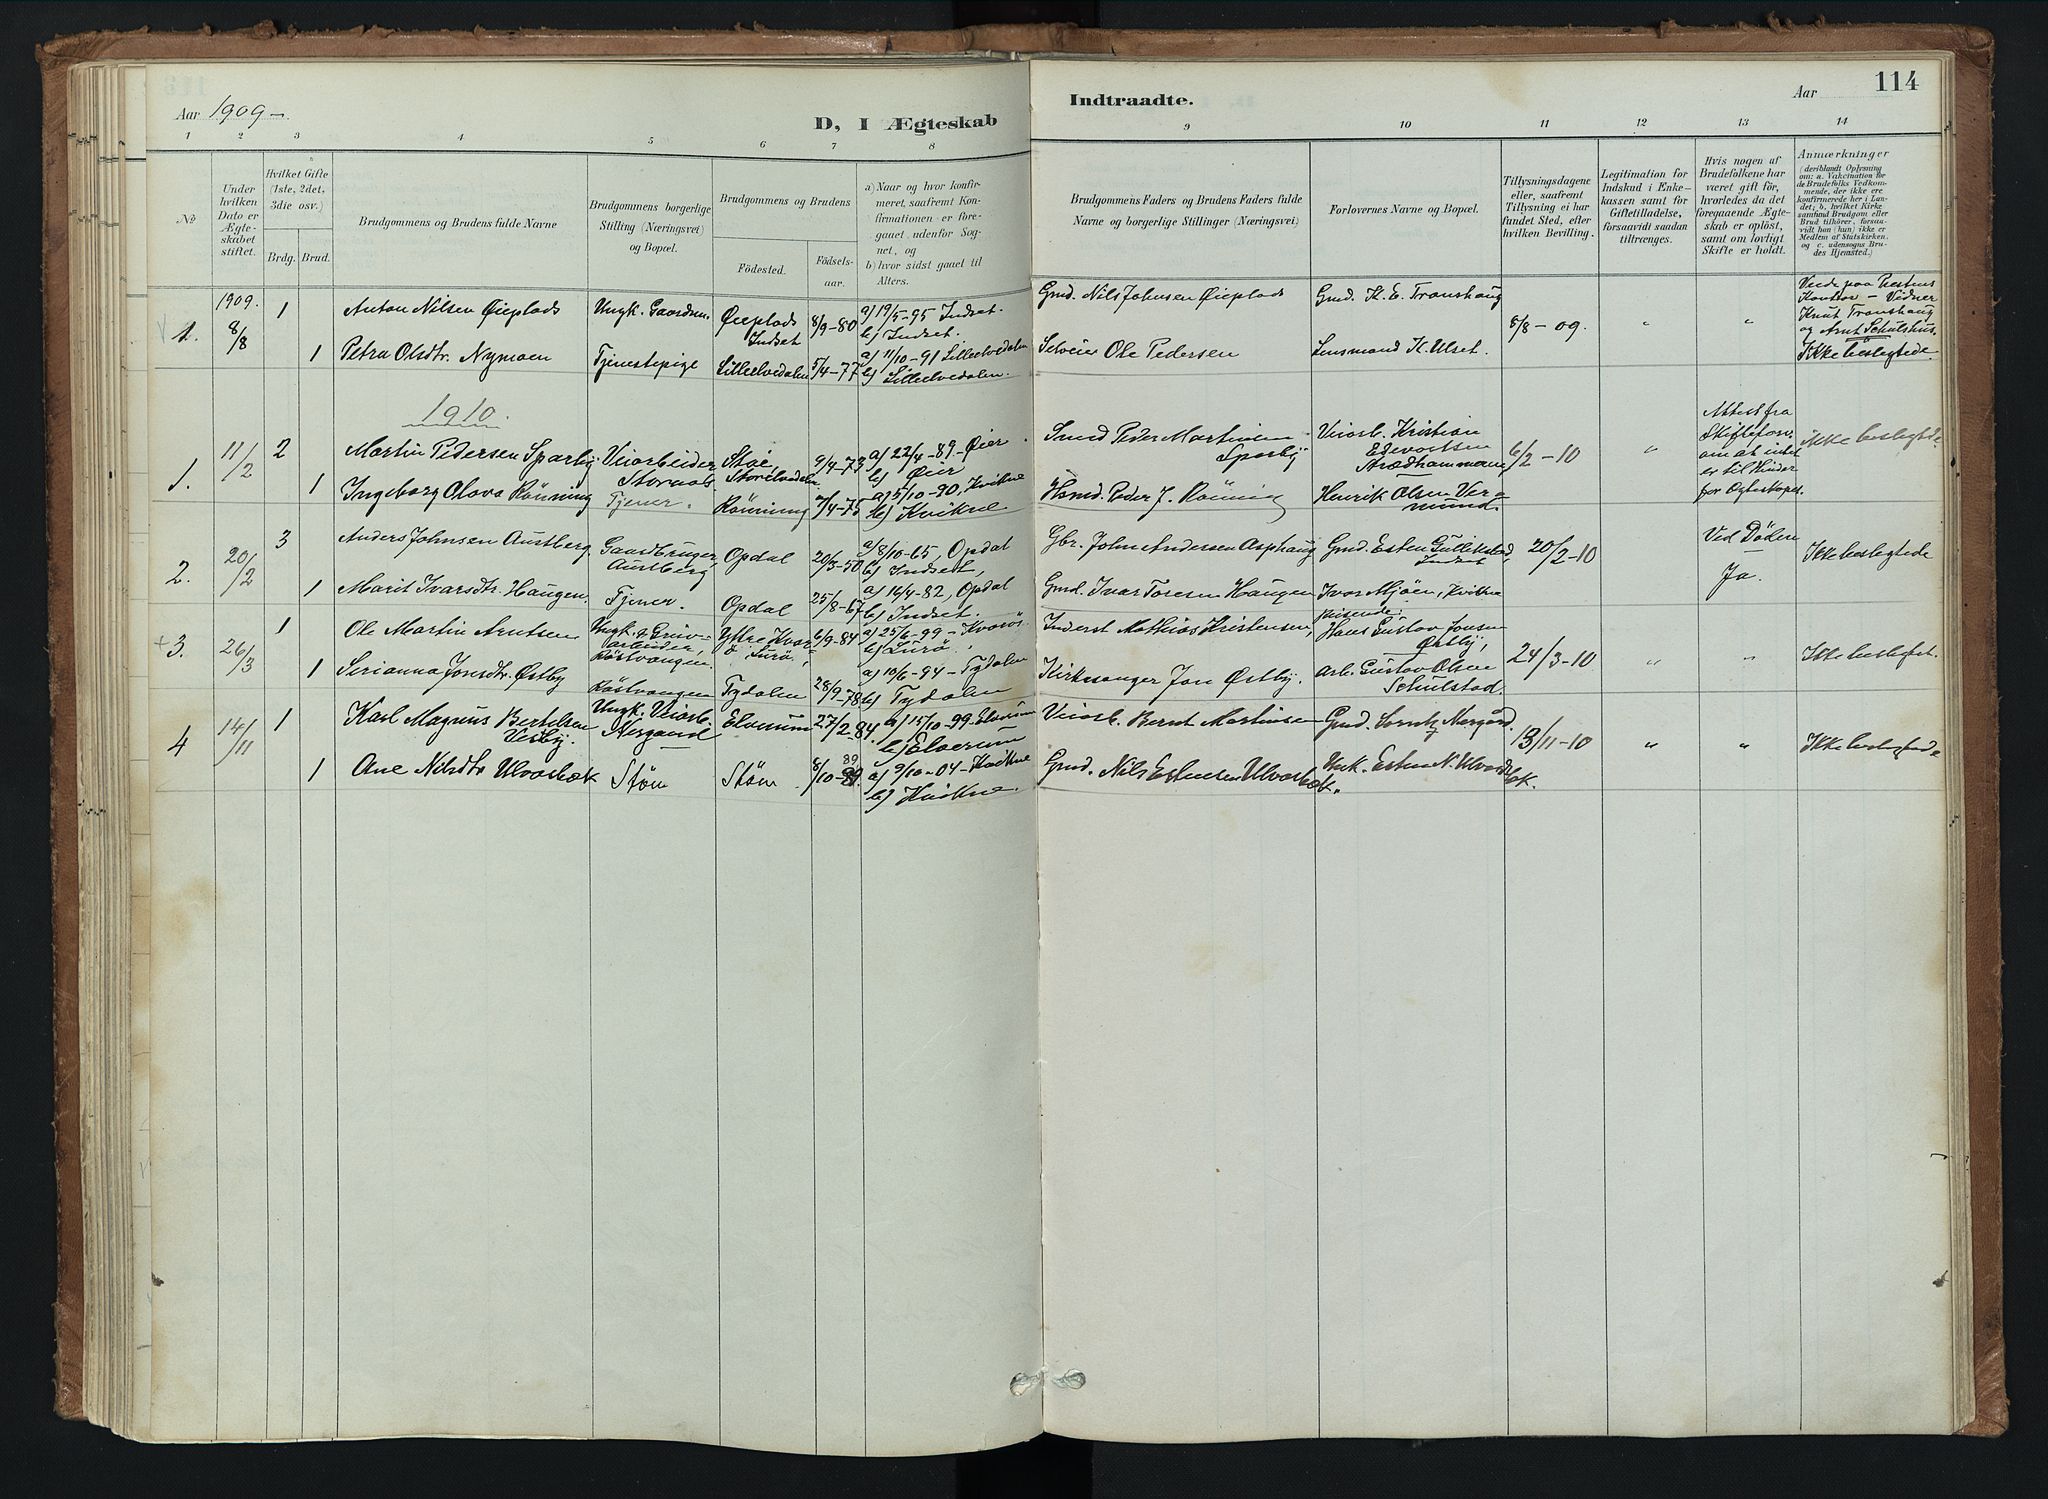 Aar 1909 –
D, I Ægteskab
Indtraadte.
Aar
114
1 2 3 4 5 6 7 8 9 10 11 12 13 14
No
Under
hvilken
Dato er
Ægte-
skabet
stiftet.
Hvilket Gifte
(1ste, 2det,
3die osv.)
Brdg. Brud.
Brudgommens og Brudens fulde Navne
Brudgommens borgerlige
Stilling (Næringsvei)
og Bopæl.
Brudgommens og Brudens
Födested.
Födsels-
aar.
a) Naar og hvor konfir-
meret, saafremt Kon-
firmationen er fore-
gaaet udenfor Sog-
net, og
b) hvor sidst gaaet til
Alters.
Brudgommens Faders og Brudens Faders fulde
Navne og borgerlige Stillinger (Næringsvei)
Forlovernes Navne og Bopæl.
Tillysningsdagene
eller, saafremt
Tillysning ei har
fundet Sted, efter
hvilken Bevilling.
Legitimation for
Indskud i Enke-
kassen samt for
Giftetilladelse,
forsaavidt saadan
tiltrænges.
Hvis nogen af
Brudefolkene har
været gift för,
hvorledes da det
foregaaende Ægte-
skab er oplöst,
samt om lovligt
Skifte er holdt.
Anmærkninger
(deriblandt Oplysning
om: a. Vakcination for
de Brudefolks Vedkom-
mende, der ikke ere
konfirmerede her i Lan-
det, b. hvilket Kirke-
samfund Brudgom eller
Brud tilhörer, forsaa-
vidt han (hun) ikke er
Medlem af Statskirken.
og c. udensogns Bru-
des Hjemsted.)
1909.
1.
8/8
1
Anton Nilsen Øieplads
Ungk. Gaardm.
Øieplads
Indset
8/9-80
a) 19/5-95 Indset.
b) Indset.
Gmd. Nils Johnsen Øieplads
Gmd. K. E. Tronshaug
8/8 – 09.
"
"
Viede paa Prestens
Kontor – Vidner
Knut Tronshaug
og Arnt Schulshus.
Ikke beslegtede.
1
Petra Olsdtr. Nymoen
Tjenestepige
Lilleelvedalen
5/4-77
a) 11/10-91 Lilleelvedalen
b) Lilleelvedalen.
Selveier Ole Pedersen
Lensmand K. Ulset.
1910.
1.
11/2
2
Martin Pedersen Sparby
Veiarbeider
Stai,
Storelvedalen
9/4-73
a) 22/4-89 – Øier.
b) Øier
Smed Peder Martinsen
Sparby
Veiarb. Kristian
6/2-10
"
Attest fra
Skifteforv.
om at intet
er til Hinder
for Ægteskapet.
Ikke beslegtede
1
Ingeborg Olava Rönning
Tjener.
Rönning
a) 5/10-90, Kvikne
b) Kvikne
Hsmd. Peder J. Rönning
Henrik Olsen Ver-
mund.
2.
20/2
3
Anders Johnsen Austberg.
Gaardbruger
Austberg
Opdal
20/3-50
a) 8/10-65, Opdal
b) Indset,
Gbr. John Andersen Asphaug
Gmd. Esten Gullikstad,
Indset
20/2-10
Ved Döden
–
Ja.
Ikke beslegtede
1
Marit Ivarsdtr. Haugen.
Tjener.
Opdal
25/8-67
a) 16/4-82, Opdal
b) Indset.
Gmd. Ivar Toresen Haugen
Ivar Mjöen, Kvikne
+3.
26/3
1
Ole Martin Arntsen
Ungk. & Gruv-
arbeider,
Röstvangen.
6/9-84
a) 25/6-99 –
b) Lurö.
Inderst Mathias Kristensen,
Reisende
Hans Gustav Jonsen
Østby,
24/3-10
"
"
Ikke beslegt.
1
Serianna Jonsdtr. Østby
Röstvangen
Tydalen
28/9-78
a) 10/6-94 – Tydalen
b) Tydalen
Kirkesanger Jon Østby.
Arb. Gustav Olsen
Schulstad.
4
14/11
1
Karl Magnus Bertelsen
Vesby.
Ungk. Veiarb.
Nergaard
Elverum
27/2-84.
a) 15/10-99 – Elverum
b) Elverum
Veiarb. Bernt Martinsen
Gmd. Nergård.
13/11-10
"
"
Ikke beslegtede
1
Ane Nilsdtr Ulvosbæk
Stöm
Stöm
8/10-89.
89
a) 9/10-04 – Kvikne
b) Kvikne.
Gmd. Nils Estensen Ulvosbæk.
Ungk. Esten N. Ulvosbæk.